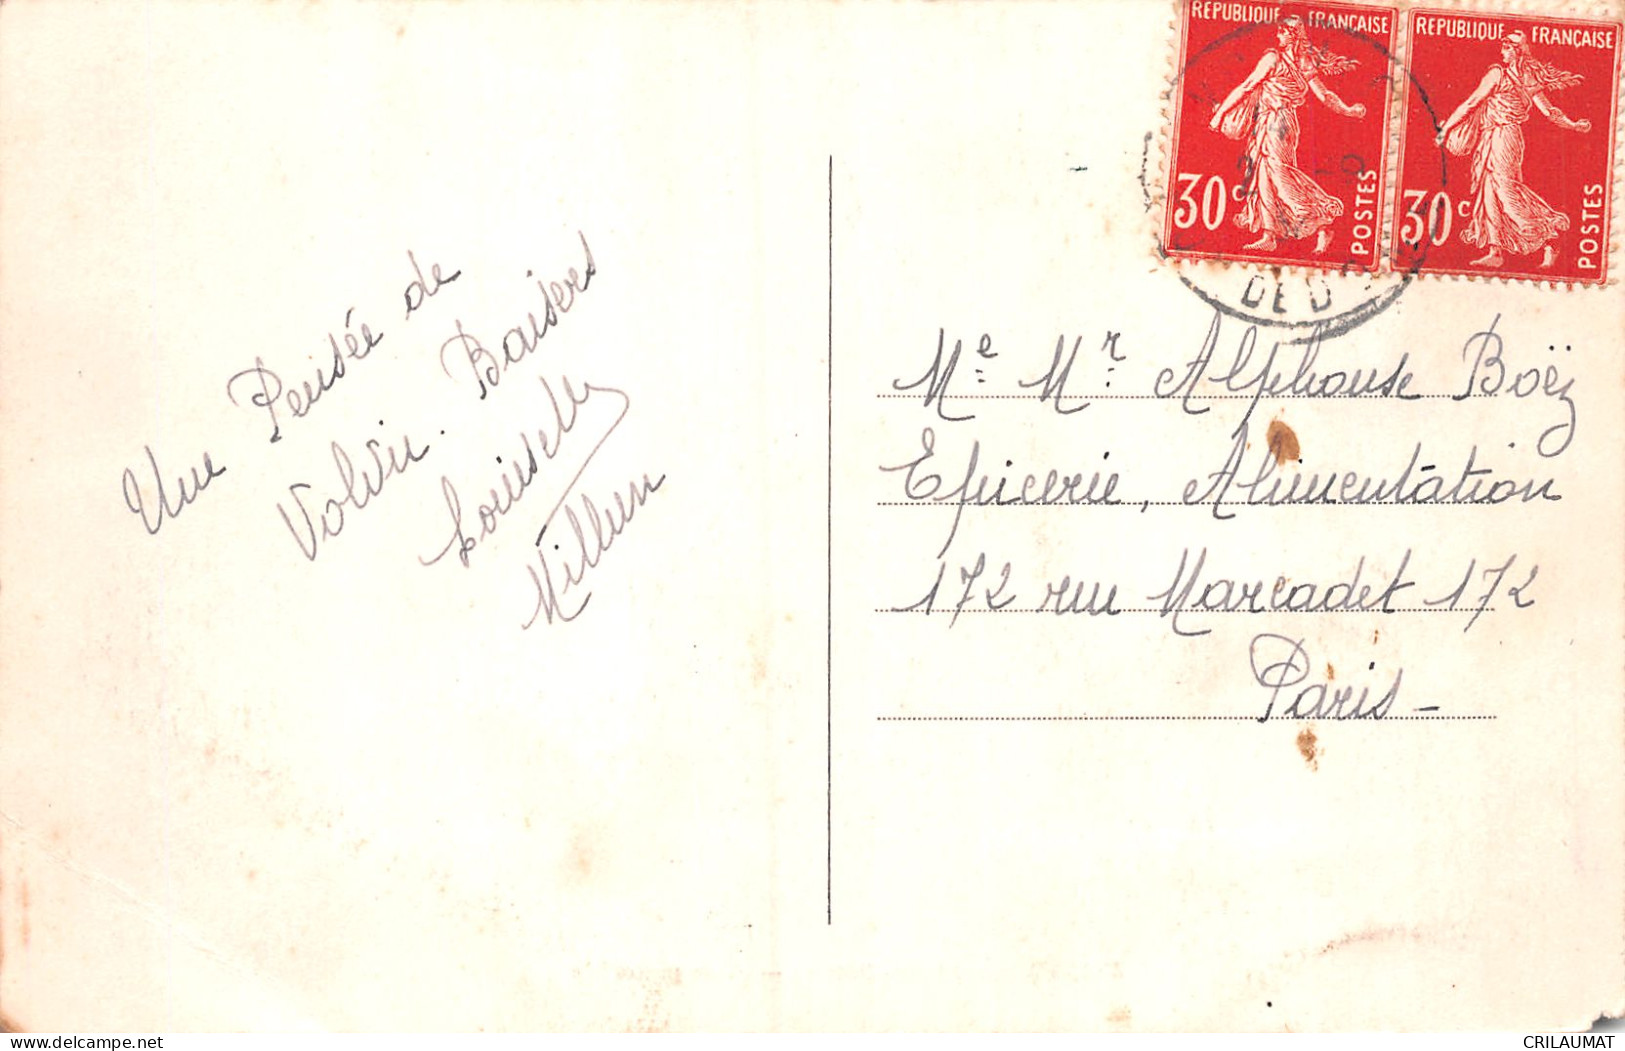 REPUBLIQUE FRANÇAISE
30c POSTES
REPUBLIQUE FRANÇAISE
30c POSTES
DE D
Une Pensée de
Volvic. Baisers
Me Mr Alphonse Boëz
Epicerie, Alimentation
172 rue Marcadet 172
Paris -
CRILAUMAT